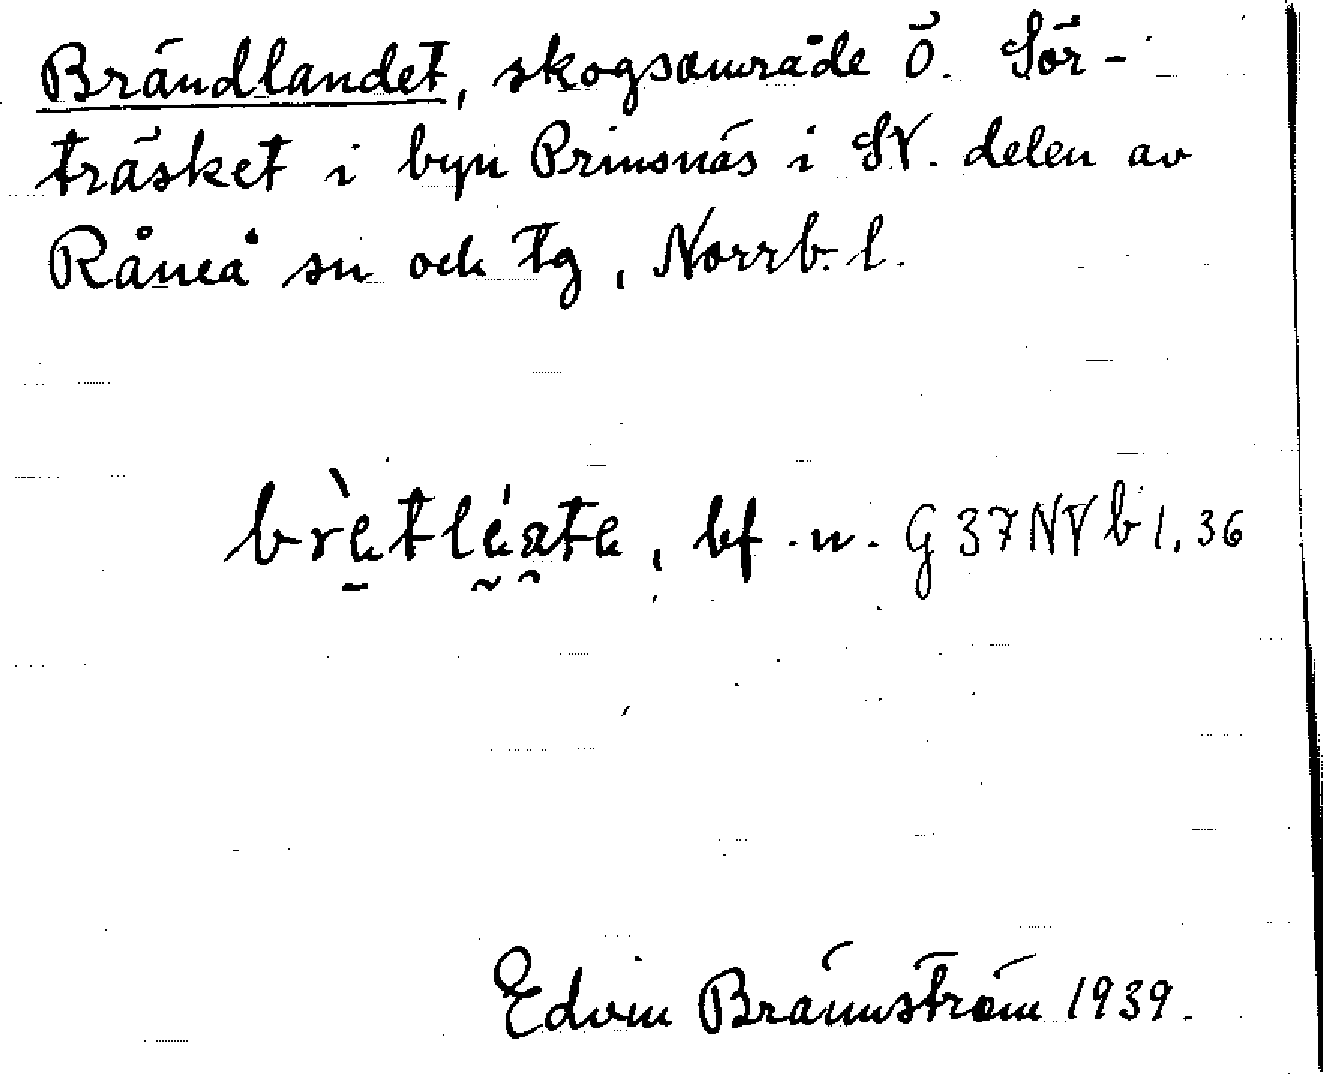 Brändlandet, skogsområde Ö. Sör-
träsket i byn Prinsnäs i SV. delen av
Råneå sn och tg, Norrb. l.
brètléate, bf. n. G 37 NV b 1, 36
Edvin Brännström 1939.